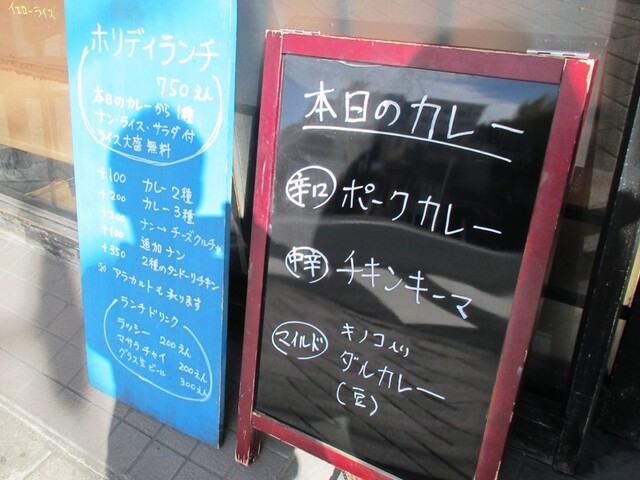 イエローライス
ホリデイランチ
750えん
本日のカレーから1種
ナン・ライス・サラダ付
ライス大盛無料
+100 カレー2種
+200 カレー3種
+200 ナン→チーズクルチャ
+100 追加ナン
+350 2種のタンドーリチキン
※アラカルトも承ります
ランチドリンク
ラッシー 200えん
マサラチャイ 200えん
グラス生ビール 300えん
本日のカレー
辛口 ポークカレー
中辛 チキンキーマ
マイルド キノコ入り
ダルカレー
(豆)